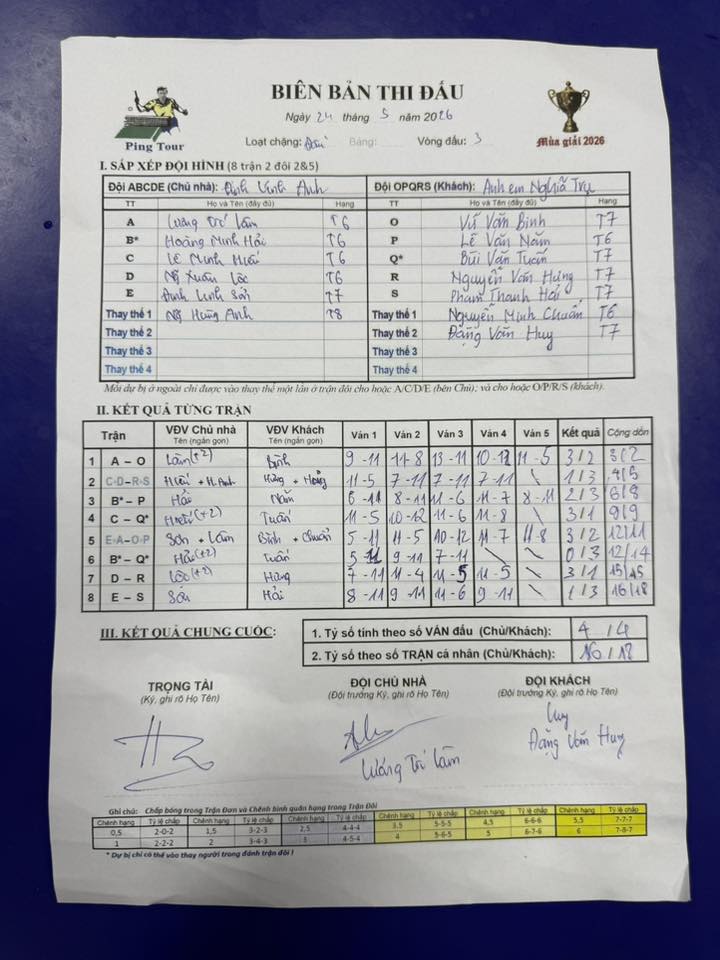 BIÊN BẢN THI ĐẤU
Ngày 24 tháng 5 năm 2026
Ping Tour
Loạt chặng: Bảng: Vòng đấu: 3
Mùa giải 2026
I. SẮP XẾP ĐỘI HÌNH (8 trận 2 đôi 2&5)
Đội ABCDE (Chủ nhà): Đinh Vinh Anh Đội OPQRS (Khách): Anh em Nghĩa Trụ
TT Họ và Tên (đầy đủ) Hạng TT Họ và Tên (đầy đủ) Hạng
A Lương Trí Lâm T6 O Vũ Văn Bính T7
B* Hoàng Minh Hải T6 P Lê Văn Năm T6
C Lê Minh Hiếu T6 Q* Bùi Văn Tuấn T7
D Ng Xuân Lộc T6 R Nguyễn Văn Hưng T7
E Đinh Linh Sơn T7 S Phạm Thanh Hải T7
Thay thế 1 Ng Hùng Anh T8 Thay thế 1 Nguyễn Minh Chuẩn T6
Thay thế 2 Thay thế 2 Đặng Văn Huy T7
Thay thế 3 Thay thế 3
Thay thế 4 Thay thế 4
Mỗi dự bị ở ngoài chỉ được vào thay thế một lần ở trận đôi cho hoặc A/C/D/E (bên Chủ); và cho hoặc O/P/R/S (khách).
II. KẾT QUẢ TỪNG TRẬN
Trận VĐV Chủ nhà Tên (ngắn gọn) VĐV Khách Tên (ngắn gọn) Ván 1 Ván 2 Ván 3 Ván 4 Ván 5 Kết quả Cộng dồn
1 A – O Lâm (+2) Bính 9 - 11 11 - 8 13 - 11 10 - 12 11 - 5 3 / 2 3/2
2 C-D-R-S Hiếu + H.Anh Hưng + 11-5 7-11 7-11 7-11 \ 1 / 3 4/5
3 B* – P Hải Năm 6 - 11 8 - 11 11 - 6 11 - 7 8 - 11 2 / 3 6/8
4 C – Q* Hiếu (+2) Tuấn 11 - 5 10 - 12 11 - 6 11 - 8 \ 3 / 1 9/9
5 E-A-O-P Sơn + Lâm Bính + Chuẩn 5 - 11 11 - 5 10 - 12 11 - 7 11-8 3 / 2 12/11
6 B* – Q* Hải (+2) Tuấn 5 - 11 9 - 11 7 - 11 \ \ 0 / 3 12/14
7 D – R Lộc (+2) Hưng 7 - 11 11 - 4 11 - 5 11 - 5 \ 3 / 1 15/15
8 E – S Sơn Hải 8 - 11 9 - 11 11 - 6 9 - 11 \ 1 / 3 16/18
III. KẾT QUẢ CHUNG CUỘC:
1. Tỷ số tính theo số VÁN đấu (Chủ/Khách): 4 / 4
2. Tỷ số theo số TRẬN cá nhân (Chủ/Khách): 16 / 18
TRỌNG TÀI ĐỘI CHỦ NHÀ ĐỘI KHÁCH
(Ký, ghi rõ Họ Tên) (Đội trưởng Ký, ghi rõ Họ Tên) (Đội trưởng Ký, ghi rõ Họ Tên)
Huy
Lương Trí Lâm Đặng Văn Huy
Ghi chú: Chấp bóng trong Trận Đơn và Chênh bình quân hạng trong Trận Đôi
Chênh hạng Tỷ lệ chấp Chênh hạng Tỷ lệ chấp Chênh hạng Tỷ lệ chấp Chênh hạng Tỷ lệ chấp Chênh hạng Tỷ lệ chấp Chênh hạng Tỷ lệ chấp
0,5 2-0-2 1,5 3-2-3 2,5 4-4-4 3,5 5-5-5 4,5 6-6-6 5,5 7-7-7
1 2-2-2 2 3-4-3 3 4-5-4 4 5-6-5 5 6-7-6 6 7-8-7
* Dự bị chỉ có thể vào thay người trong đánh trận đôi !